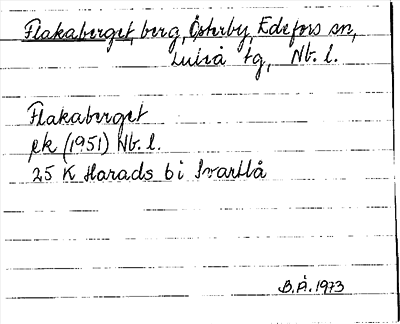 Flakaberget, berg, Österby, Edefors sn,
Luleå tg, Nb. l.
Flakaberget
ek (1951) Nb. l.
25 K Harads 6 i Svartlå
B.Å. 1973